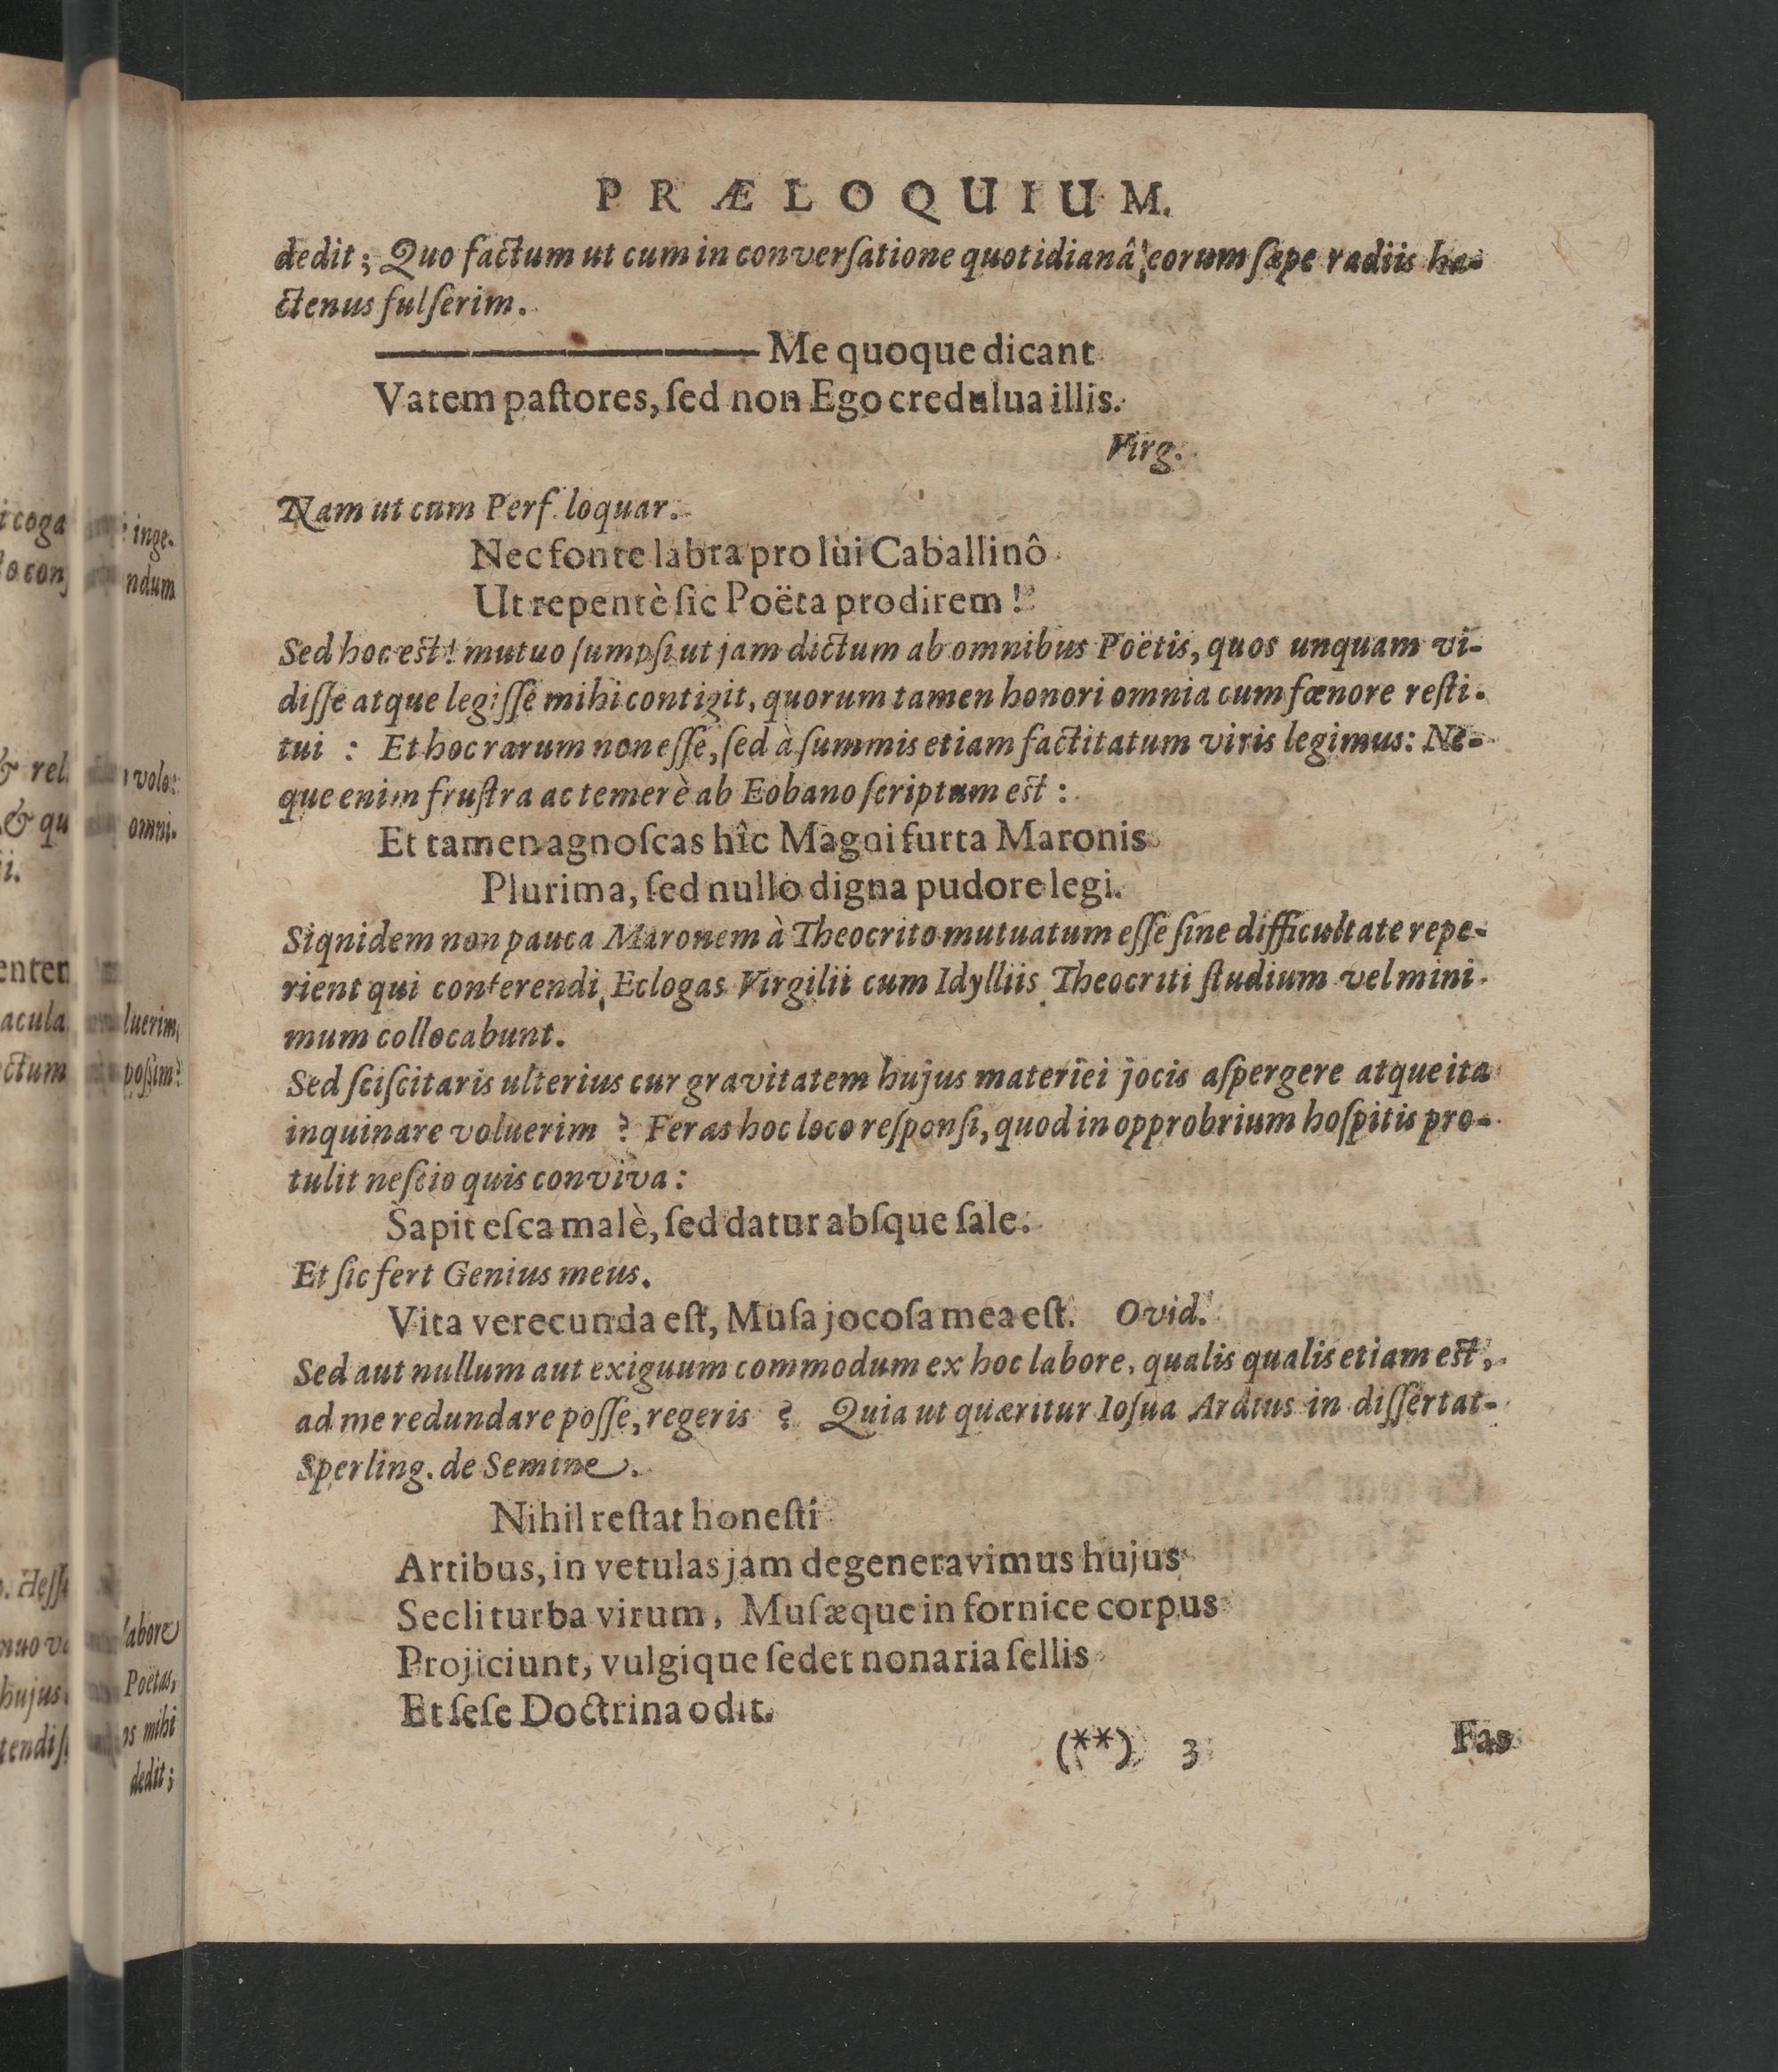 PRÆLOQUIUM.
dedit; Quo factum ut cum in converſatione quotidianâ eorum ſæpe radiis ha-
ctenus fulſerim.
Me quoque dicant
Vatem paſtores, ſed non Ego credulua illis.
Virg.
Nam ut cum Perſ. loquar.
Nec fonte labra pro lùi Caballinô
Ut repentè ſic Poëta prodirem!
Sed hoc est! mutuo ſumpſi ut jam dictum ab omnibus Poëtis, quos unquam vi-
diſſe atque legiſſe mihi contigit, quorum tamen honori omnia cum fœnore reſti-
tui : Et hoc rarum non eſſe, ſed à ſummis etiam factitatum viris legimus: Ne-
que enim fruſtra ac temerè ab Eobano ſcriptum est:
Et tamen agnoſcas hîc Magni furta Maronis
Plurima, ſed nullo digna pudore legi.
Siqnidem non pauca Maronem à Theocrito mutuatum eſſe ſine difficultate repe-
rient qui conferendi Eclogas Virgilii cum Idylliis Theocriti ſtudium vel mini-
mum collocabunt.
Sed ſciſcitaris ulterius cur gravitatem hujus materiei jocis aſpergere atque ita
inquinare voluerim ? Feras hoc loco reſponſi, quod in opprobrium hoſpitis pro-
tulit neſcio quis conviva:
Sapit eſca malè, ſed datur abſque ſale.
Et ſic fert Genius meus.
Vita verecunda eſt, Muſa jocoſa mea eſt. Ovid.
Sed aut nullum aut exiguum commodum ex hoc labore, qualis qualis etiam est,
ad me redundare poſſe, regeris ? Quia ut quæritur Ioſua Ardtus in diſſertat-
Sperling. de Semine.
Nihil reſtat honeſti
Artibus, in vetulas jam degeneravimus hujus
Secli turba virum, Muſæque in fornice corpus
Projiciunt, vulgique ſedet nonaria ſellis
Et ſeſe Doctrina odit.
(**) 3 Fas